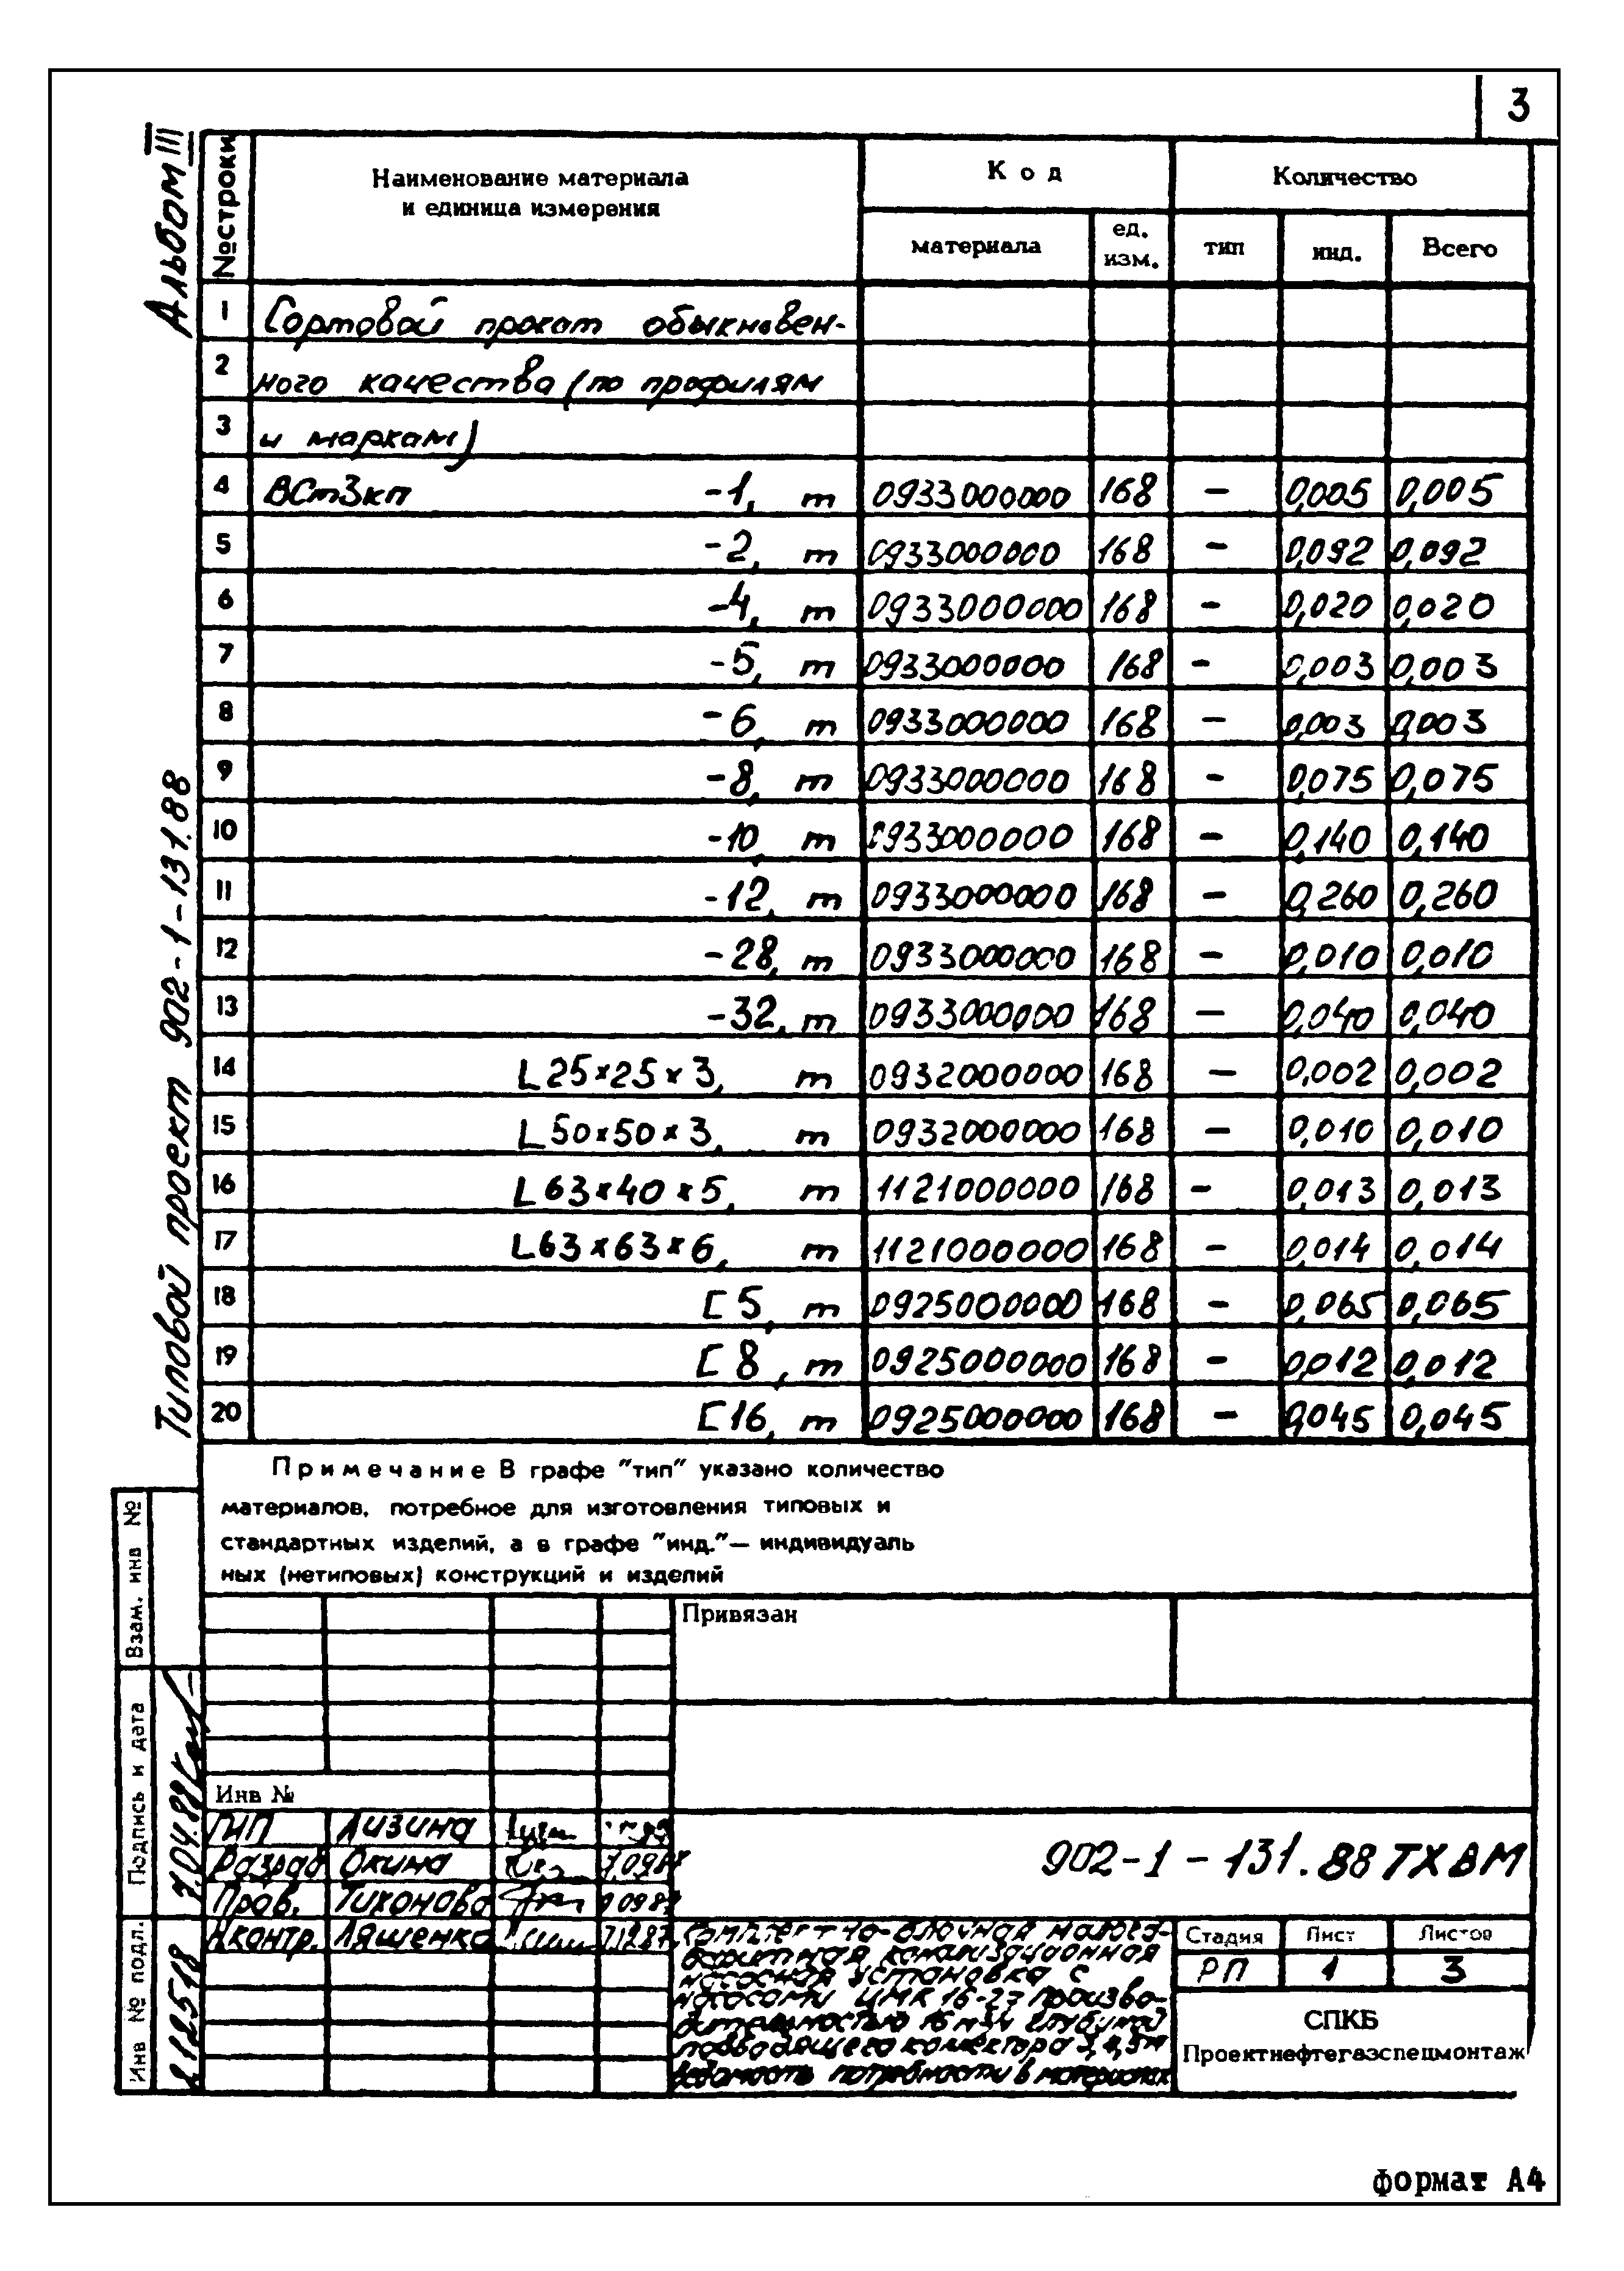 3
Альбом III
Типовой проект 902-1-131.88
№ строки
Наименование материала
и единица измерения
Код
Количество
материала
ед.
изм.
тип
инд.
Всего
1 Сортовой прокат обыкновен-
2 ного качества (по профилям
3 и маркам)
4 ВСт3кп -1, т 0933000000 168 - 0,005 0,005
5 -2, т 0933000000 168 - 0,092 0,092
6 -4, т 0933000000 168 - 0,020 0,020
7 -5, т 0933000000 168 - 0,003 0,003
8 -6, т 0933000000 168 - 0,003 0,003
9 -8, т 0933000000 168 - 0,075 0,075
10 -10, т 0933000000 168 - 0,140 0,140
11 -12, т 0933000000 168 - 0,260 0,260
12 -28, т 0933000000 168 - 0,010 0,010
13 -32, т 0933000000 168 - 0,040 0,040
14 L25×25×3, т 0932000000 168 - 0,002 0,002
15 L50×50×3, т 0932000000 168 - 0,010 0,010
16 L63×40×5, т 1121000000 168 - 0,013 0,013
17 L63×63×6, т 1121000000 168 - 0,014 0,014
18 [5, т 0925000000 168 - 0,065 0,065
19 [8, т 0925000000 168 - 0,012 0,012
20 [16, т 0925000000 168 - 0,045 0,045
Примечание В графе "тип" указано количество
материалов, потребное для изготовления типовых и
стандартных изделий, а в графе "инд."— индивидуаль
ных (нетиповых) конструкций и изделий
Взам. инв №
Подпись и дата
7.04.88
Инв № подл.
21125/18
Привязан
Инв №
ГИП Лизина
Разраб Окина
Пров. Тихонова
Н.контр. Ляшенко
902-1-131.88 ТХ ВМ
Комплектно-блочная малога-
баритная канализационная
насосная установка с
насосами ЦМК 16-27 произво-
дительностью 16 м3/ч глубиной
подводящего коллектора 3,4,5м
Ведомость потребности в материалах
Стадия Лист Листов
РП 1 3
СПКБ
Проектнефтегазспецмонтаж
Формат А4